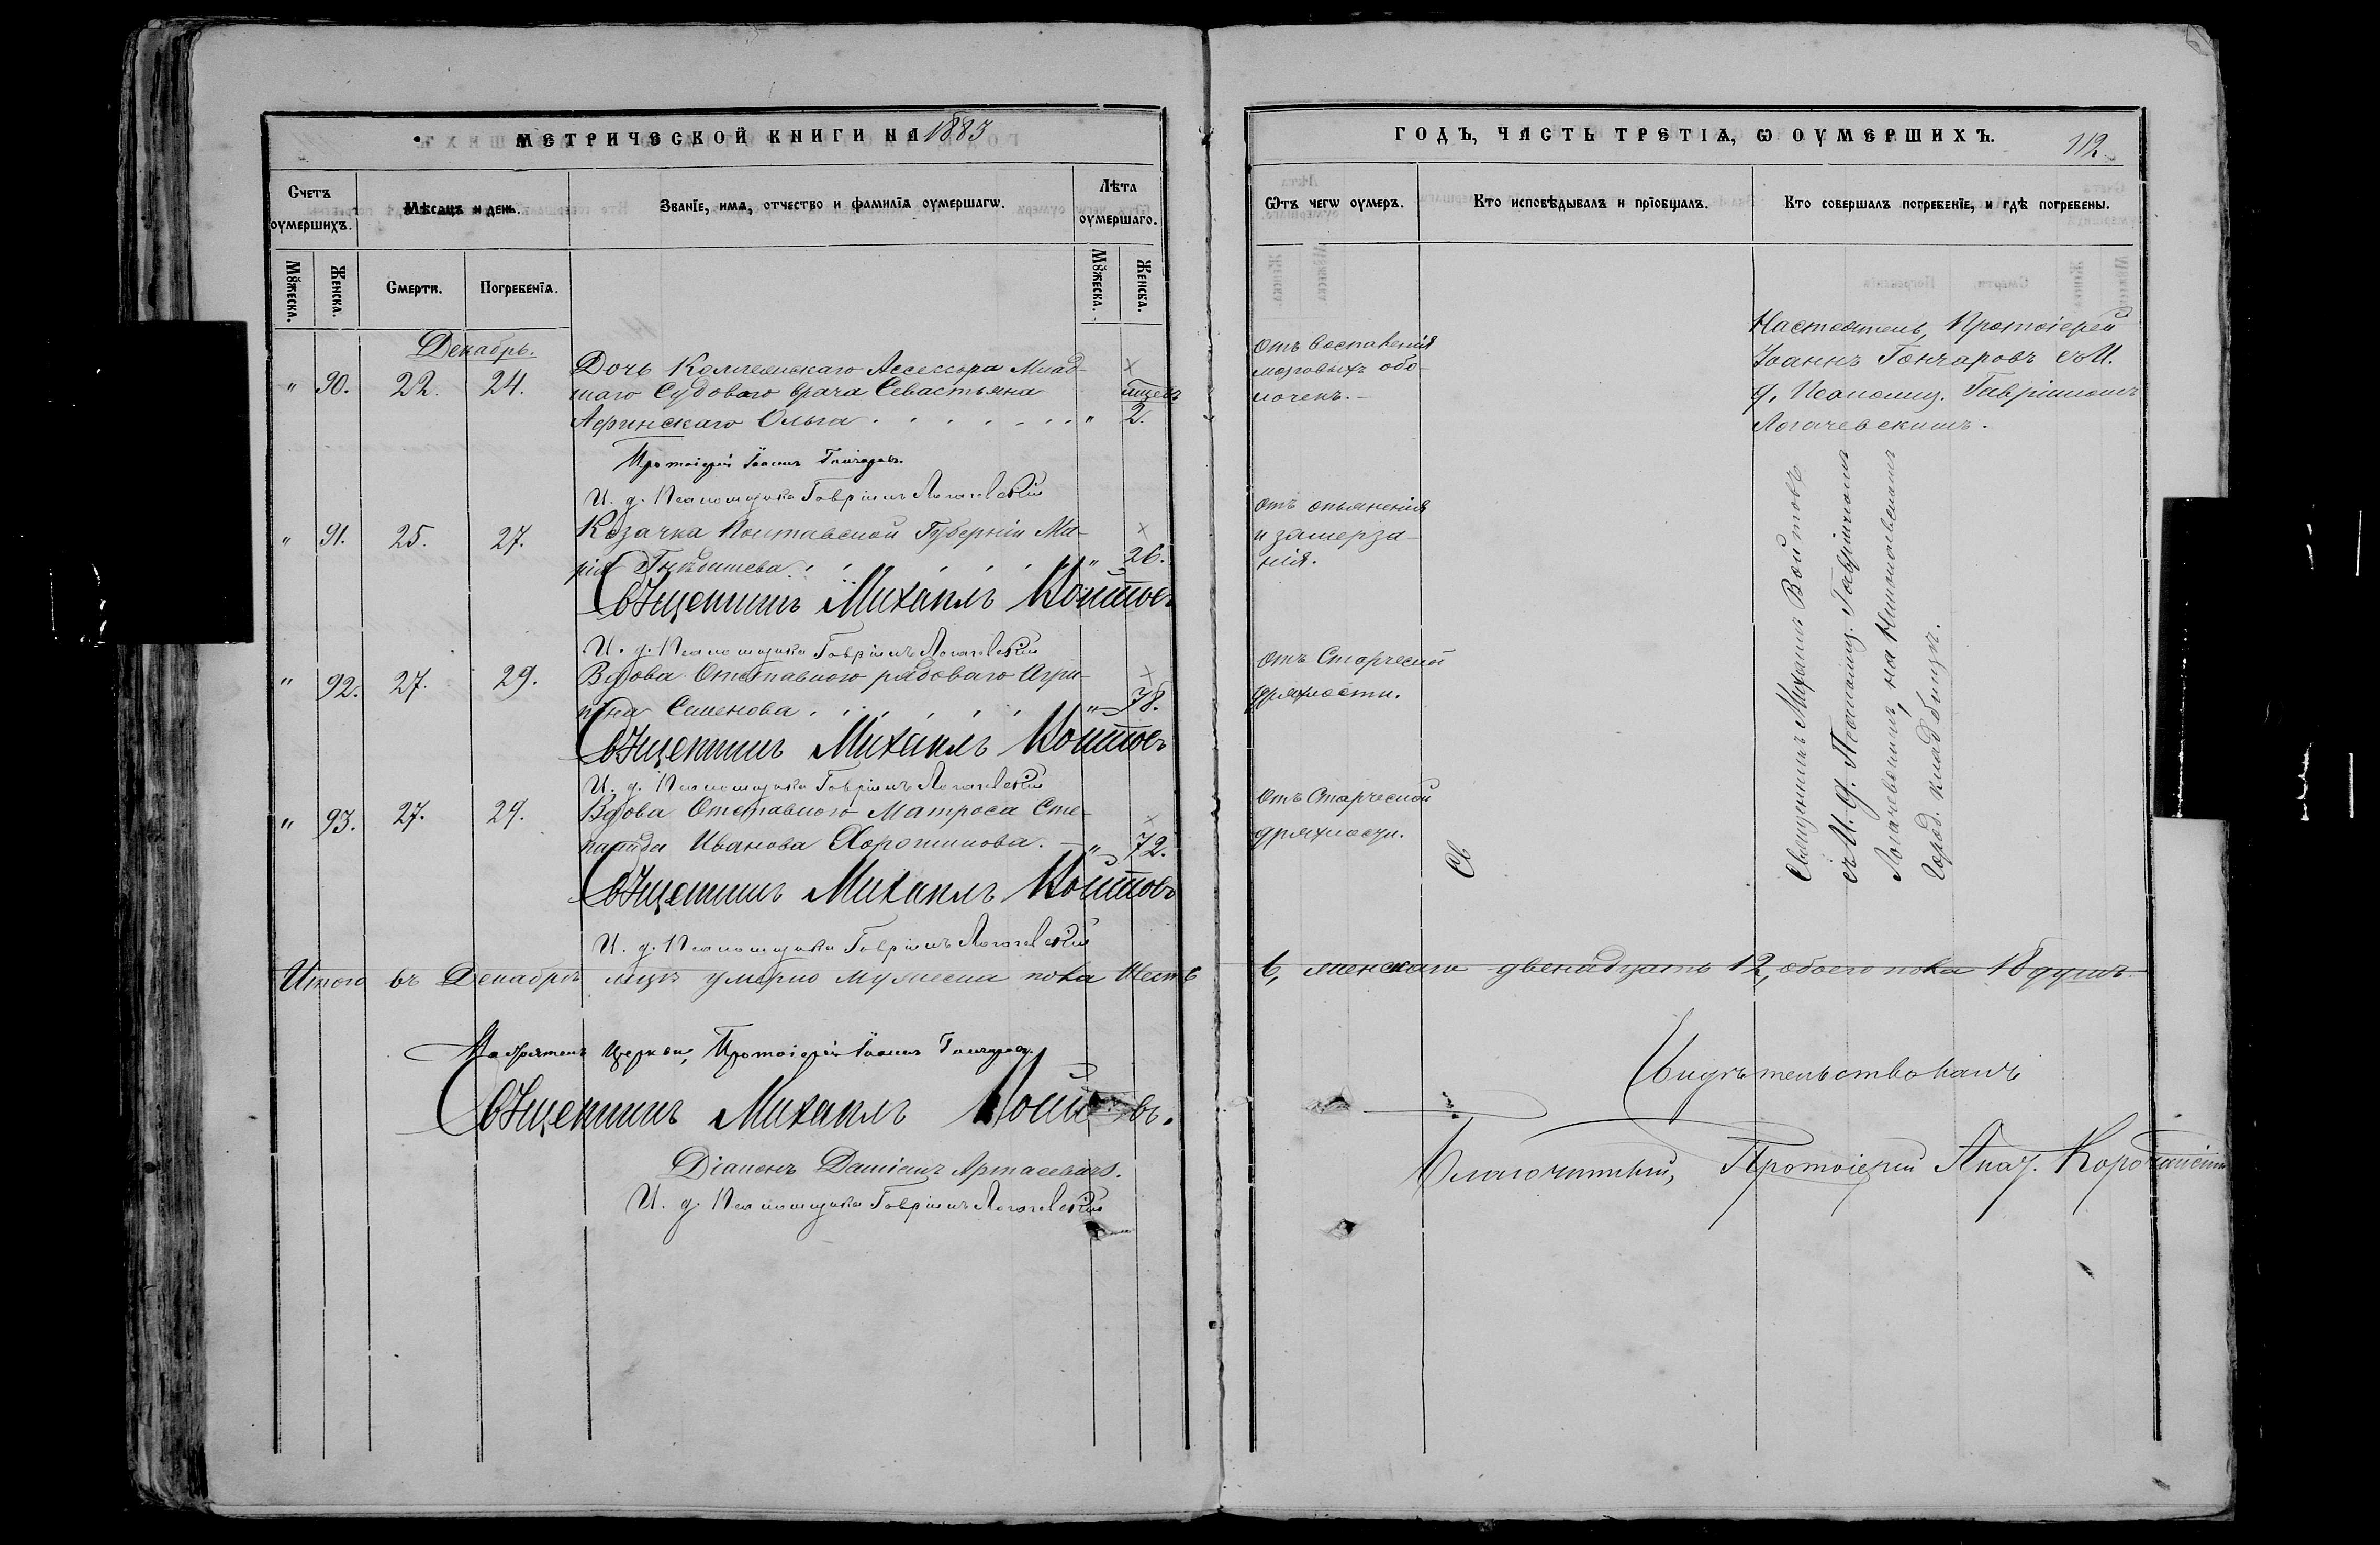 МЕТРИЧЕСКОЙ КНИГИ НА 1883
Счетъ оумершихъ.
Мѣсяцъ и день.
Званіе, имя, отчество и фамилія оумершагѡ.
Лѣта оумершаго.
Мꙋжеска.
Женска.
Смерти.
Погребенія.
Мꙋжеска.
Женска.
Декабрь.
" 90. 22. 24.
Дочь Коллежскаго Ассессора Млад-
шаго Судоваго врача Севастьяна
Афинскаго Ольга " 2.
Протоіерей Іоаннъ Гончаровъ.
И. д. Псаломщика Гавріилъ Логачевскій
" 91. 25. 27.
Козачка Полтавской Губерніи Ма-
рія " 26.
Священникъ Михаилъ Войтовъ
И. д. Псаломщика Гавріилъ Логачевскій
" 92. 27. 29.
Вдова Отставного рядоваго Агри-
пина Семенова " 78.
Священникъ Михаилъ Войтовъ
И. д. Псаломщика Гавріилъ Логачевскій
" 93. 27. 29.
Вдова Отставного Матроса Сте-
панида Иванова " 72.
Священникъ Михаилъ Войтовъ
И. д. Псаломщика Гавріилъ Логачевскій
Итого въ Декабрѣ умерло мужеска пола шесть
Настоятель Церкви, Протоіерей Іоаннъ Гончаровъ.
Священникъ Михаилъ Войтовъ.
Діаконъ
И. д. Псаломщика Гавріилъ Логачевскій
ГОДЪ, ЧАСТЬ ТРЕТІЯ, Ѡ ОУМЕРШИХЪ.
112
Ѿтъ чегѡ оумеръ.
Кто исповѣдывалъ и пріобщалъ.
Кто совершалъ погребеніе, и гдѣ погребены.
Отъ воспаленія
мозговыхъ обо-
лочекъ.
Настоятель, Протоіерей
Іоаннъ Гончаровъ съ И.
д. Псаломщ. Гавріиломъ
Логачевскимъ.
Отъ опьяненія
и замерза-
нія.
Отъ Старческой
дряхлости.
Отъ Старческой
дряхлости.
Св
Священникъ Михаилъ Войтовъ
съ И. д. Псаломщ. Гавріиломъ
Логачевскимъ, на
Город. кладбищѣ.
6, женскаго двенадцать 12, обоего пола 18 душъ
Свидѣтельствовалъ
Благочинный, Протоіерей